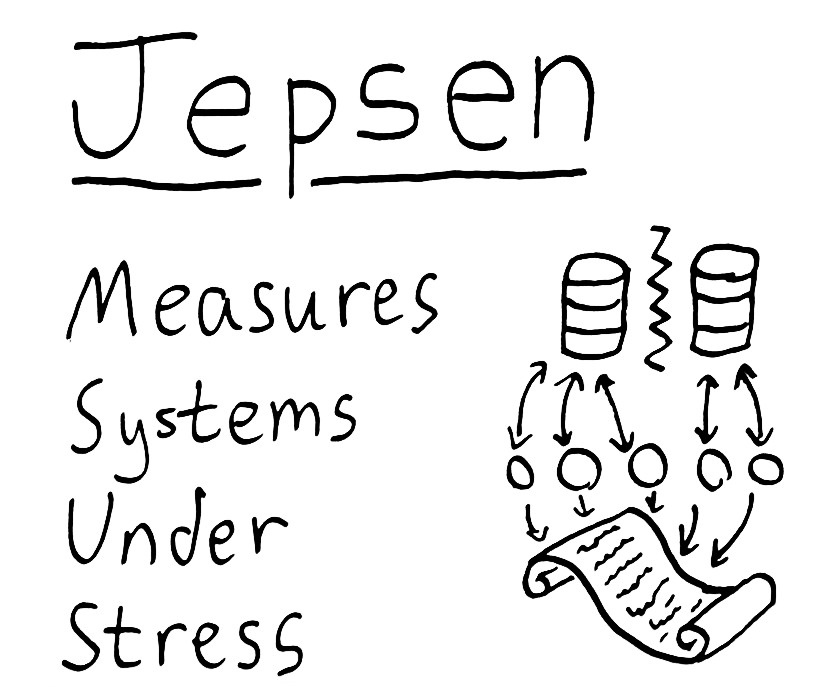 Jepsen
Measures
Systems
Under
Stress